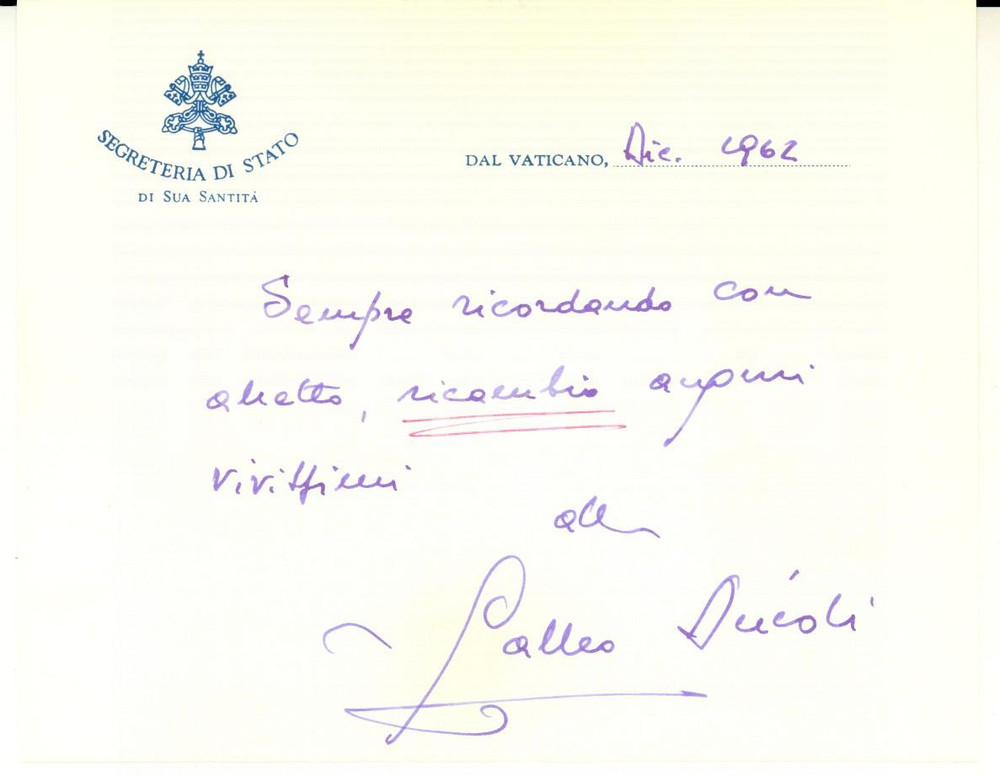 SEGRETERIA DI STATO
DI SUA SANTITÀ
DAL VATICANO, Dic. 1962
Sempre ricordando con
affetto, ricambio auguri
vivissimi
aff